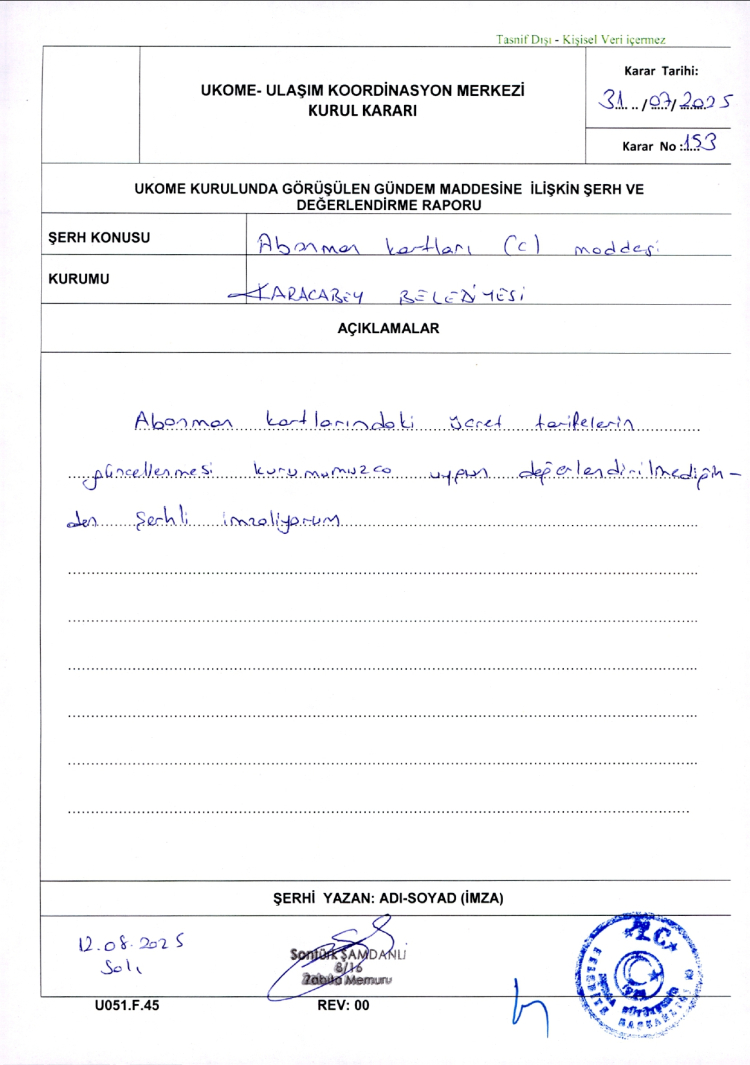 Tasnif Dışı - Kişisel Veri içermez
UKOME- ULAŞIM KOORDİNASYON MERKEZİ
KURUL KARARI
Karar Tarihi:
31../07/2025
Karar No :.153
UKOME KURULUNDA GÖRÜŞÜLEN GÜNDEM MADDESİNE İLİŞKİN ŞERH VE
DEĞERLENDİRME RAPORU
ŞERH KONUSU
Abonman kartları (c) maddesi
KURUMU
KARACABEY BELEDİYESİ
AÇIKLAMALAR
Abonman kartlarındaki ücret tarifelerin
güncellenmesi kurumumuzca uygun değerlendirilmediğin-
den Şerhli imzalıyorum
ŞERHİ YAZAN: ADI-SOYAD (İMZA)
12.08.2025
Salı
Sontürk ŞAMDANLI
8/16
Zabıta Memuru
T.C.
U051.F.45
REV: 00